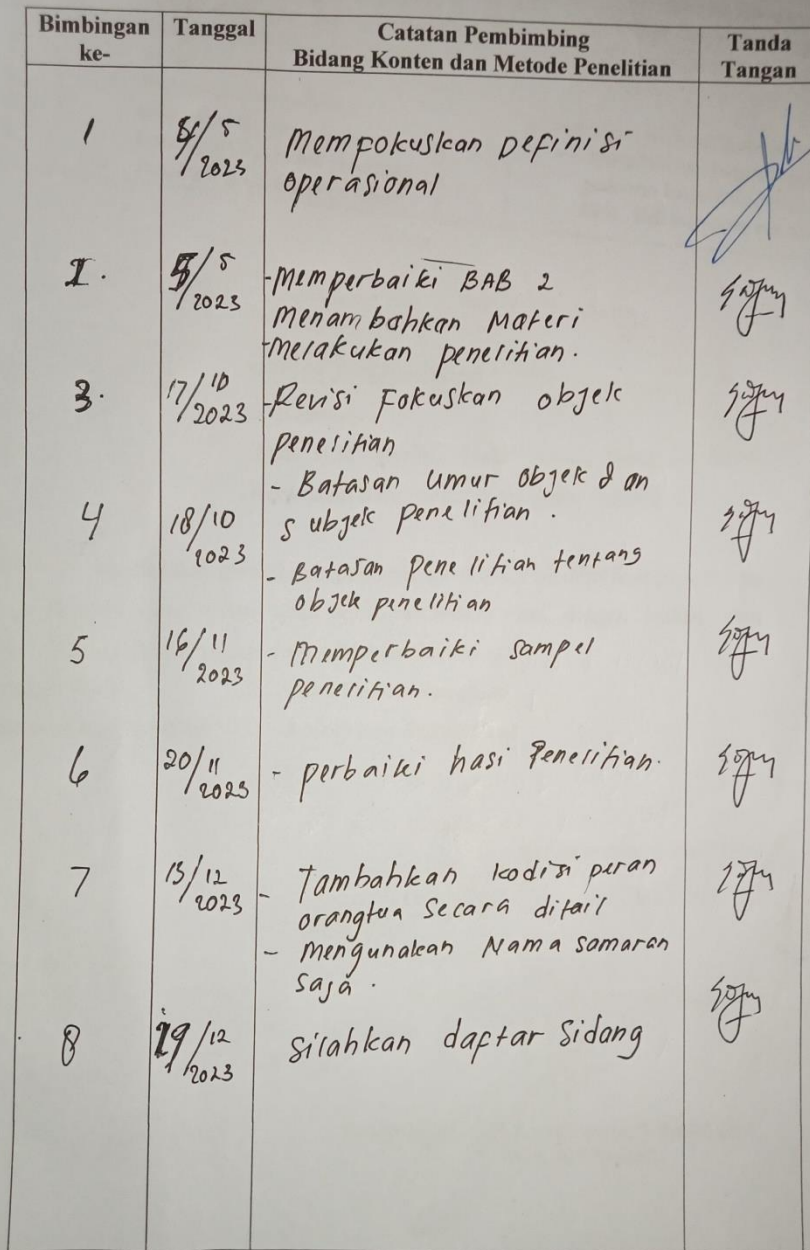 Bimbingan ke- Tanggal Catatan Pembimbing Bidang Konten dan Metode Penelitian Tanda Tangan
1 5/2023 Mempokuskan Definisi
operasional
2. 5/5 2023 -Memperbaiki BAB 2
Menambahkan Materi
-Melakukan penelitian.
3. 17/10 2023 -Revisi Fokuskan objek
penelitian
- Batasan umur objek dan
4 18/10 2023 subjek penelitian.
- Batasan penelitian tentang
objek penelitian
5 16/11 2023 - memperbaiki sampel
penelitian.
6 20/11 2023 - perbaiki hasi Penelitian.
7 13/12 2023 - Tambahkan kodisi peran
orangtua secara ditail
- Mengunakan Nama somaran
saja.
8 19/12 2023 silahkan daptar Sidang